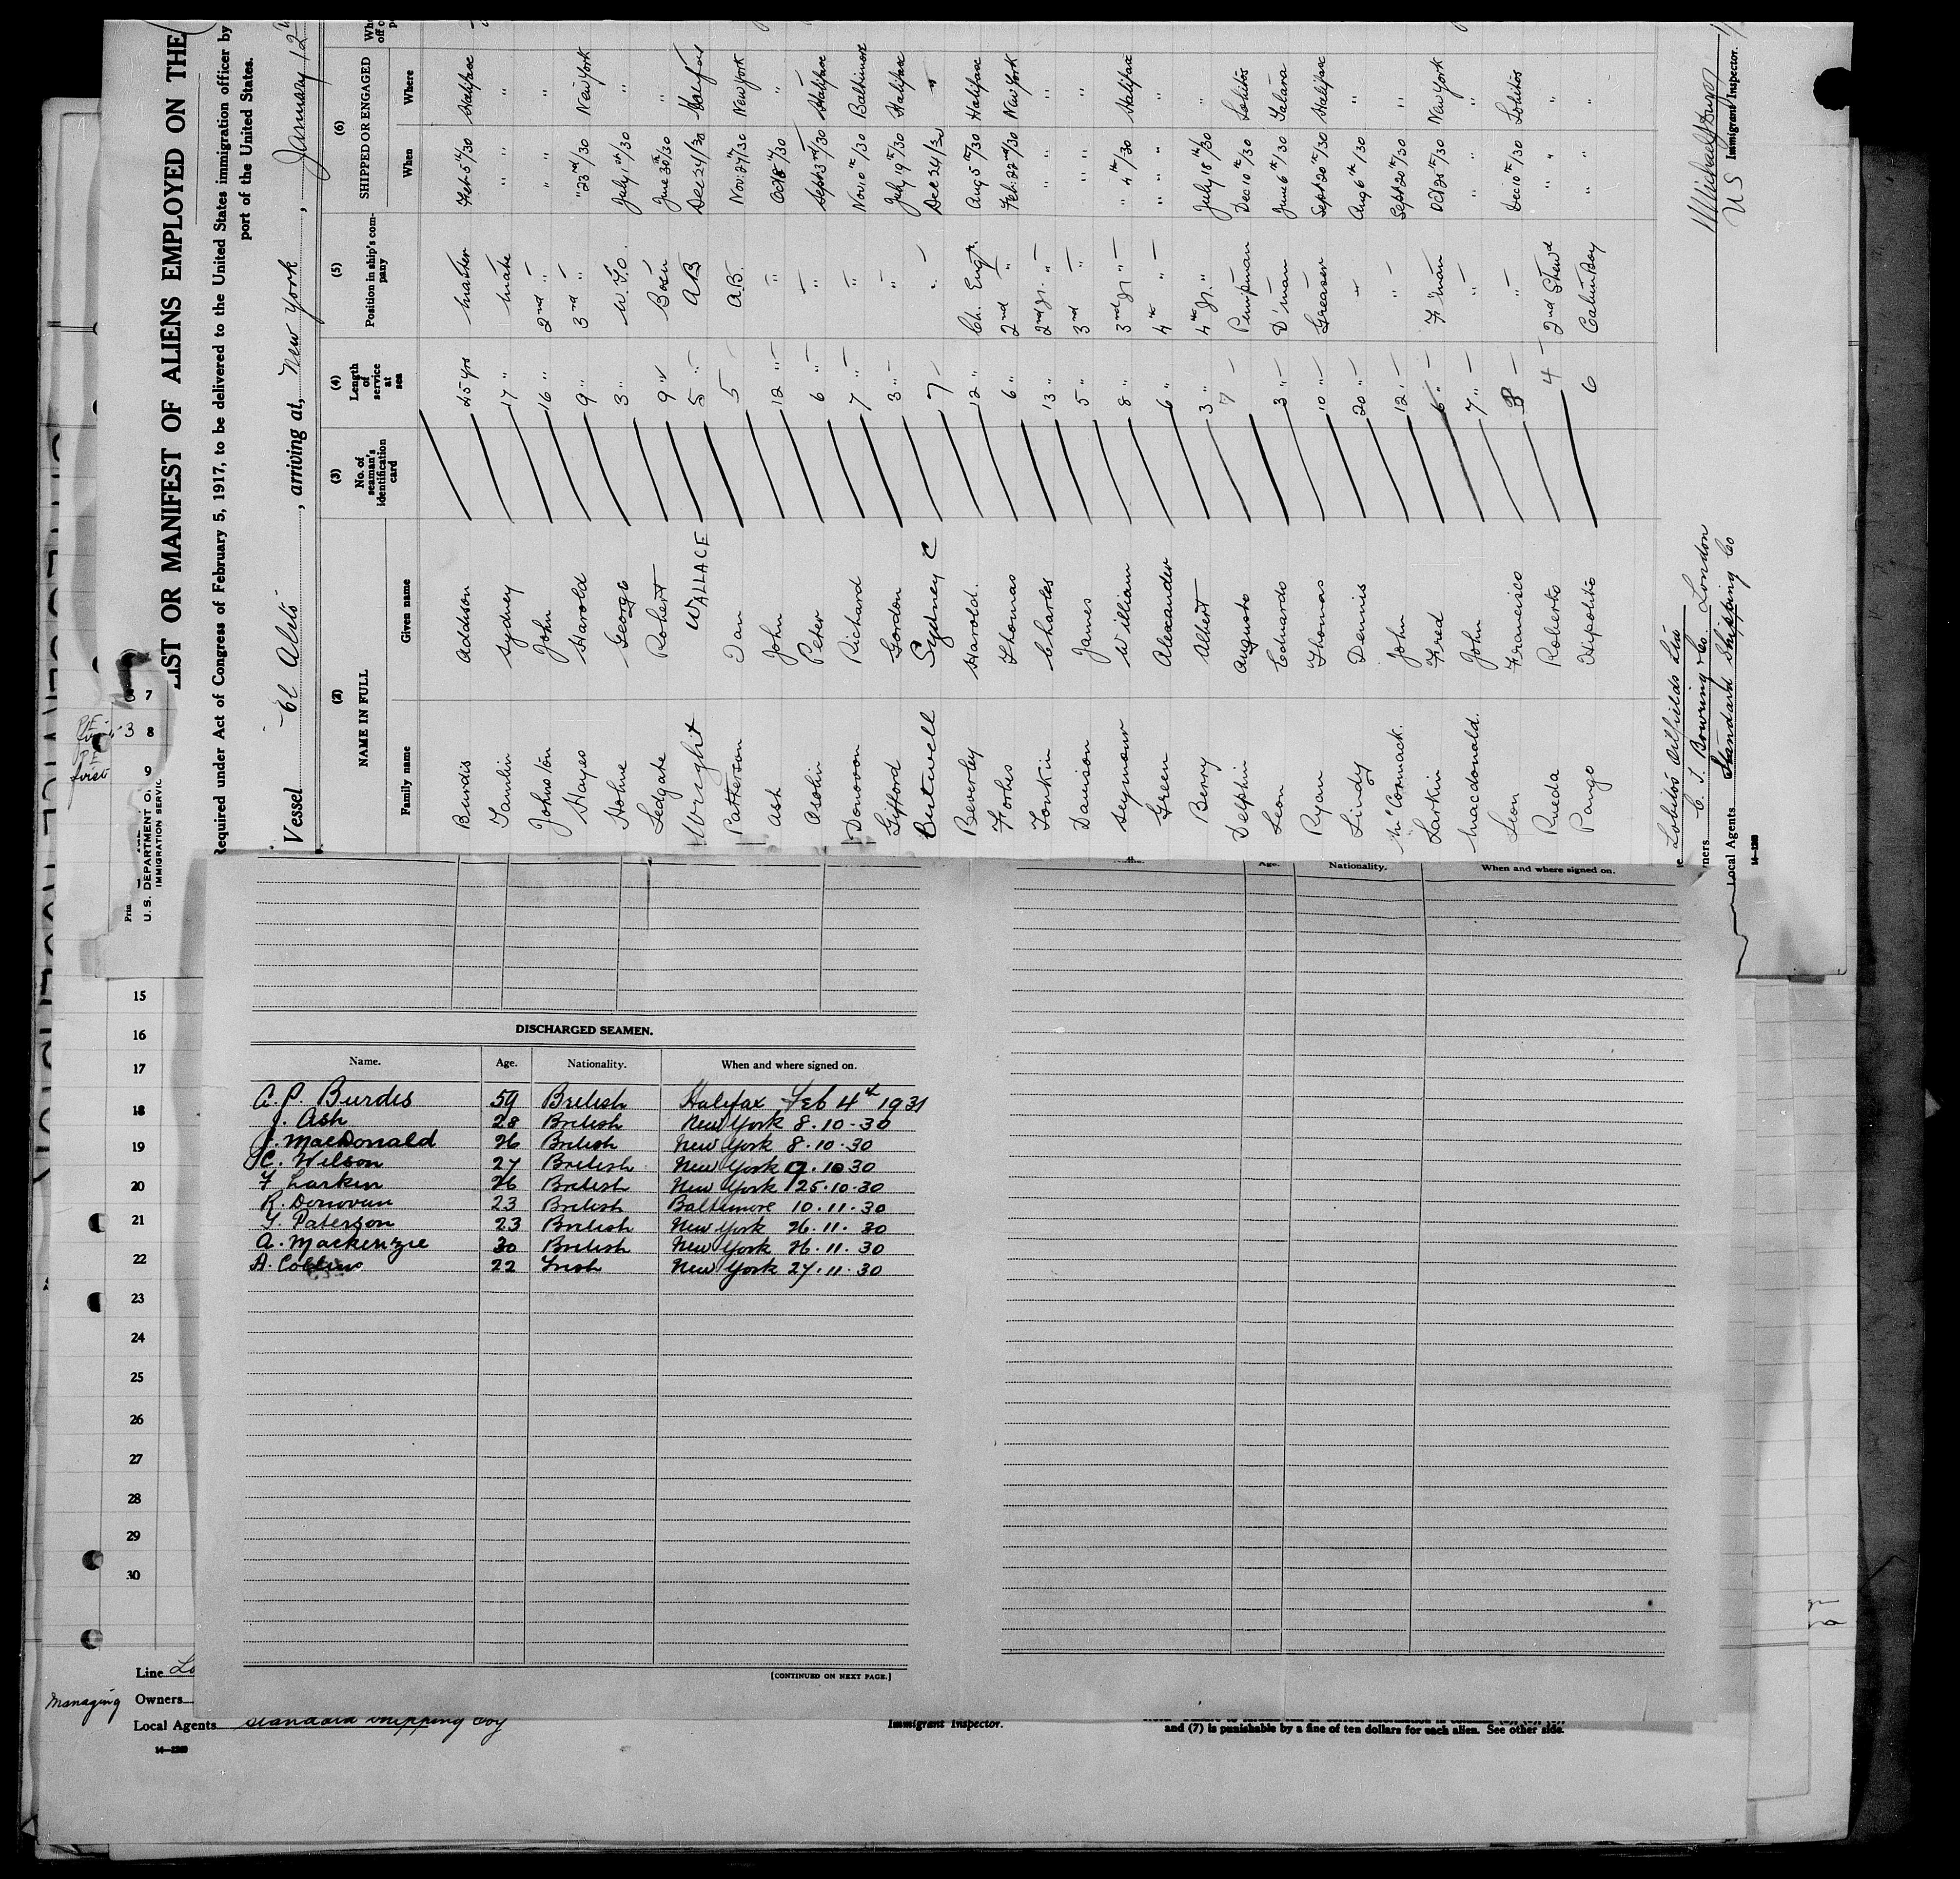 LIST OR MANIFEST OF ALIENS EMPLOYED ON THE
Required under Act of Congress of February 5, 1917, to be delivered to the United States immigration officer by
port of the United States.
Vessel El Alito, arriving at, New York, January 12
(2) (3) (4) (5) (6)
NAME IN FULL No. of seaman's identification card Length of service at sea Position in ship's company SHIPPED OR ENGAGED
Family name Given name When Where
Burdis Addison 25 yrs Master Feb 5th/30 Halifax
Tamlin Sydney 17 " Mate " " "
Johnston John 16 " 2nd " " "
Hayes Harold 9 " 3rd " " 23rd/30 New York
Hohne George 3 " W.T.O. July 1st/30 "
Ledgate Robert 9 " Bos'n June 30th/30 "
Wright WALLACE 5 " AB Dec 24/30 Halifax
Patterson Ian 5 A.B. Nov. 27th/30 New York
Ash John 12 " " Oct 8th/30 "
Asohin Peter 6 " " Sept 3rd/30 Halifax
Donovon Richard 7 " " Nov 10th/30 Baltimore
Gifford Gordon 3 " " July 19th/30 Halifax
Butwell Sydney C 7 " Dec 24/30 "
Beverley Harold. 12 " Ch. Engr. Aug 5th/30 Halifax
Forbes Thomas 6 " 2nd " Feb. 22nd/30 New York
Tonkin Charles 13 " 2nd Jr. " " " "
Danison James 5 " 3rd " " " "
Seymour William 8 " 3rd Jr " " 4th/30 Halifax
Green Alexander 6 " 4th " " " "
Berry Albert 3 " 4th Jr. " July 18th/30 "
Delphin Augusto 7 Pumpman Dec 10th/30 Lobitos
Leon Eduardo 3 " D'man June 6th/30 Talara
Ryan Thomas 10 " Greaser Sept 20th/30 Halifax
Lindy Dennis 20 " " Aug 6th/30 "
McCormack. John 12 " " Sept 20th/30 "
Larkin Fred 6 " F'man Oct 25th/30 New York
Macdonald. John 7 " " " "
Leon Francisco 3 " Dec 10th/30 Lobitos
Rueda Roberto 4 2nd Stew'd " " "
Pango Hipolito 6 Cabin Boy " " "
Lobitos Oilfields Ltd
Owners C. T. Bowring & Co. London
Local Agents Standard Shipping Co
14—1269
U S Immigrant Inspector.
7
8
9
U.S. DEPARTMENT OF
IMMIGRATION SERVIC
Age. Nationality. When and where signed on.
DISCHARGED SEAMEN.
Name. Age. Nationality. When and where signed on.
A. P. Burdis 59 British Halifax Feb 4th 1931
J. Ash 28 British New York 8.10.30
J. MacDonald 26 British New York 8.10.30
C. Wilson 27 British New York 9.10.30
F Larkin 26 British New York 25.10.30
R. Donovan 23 British Baltimore 10.11.30
I. Paterson 23 British New York 26.11.30
A. Mackenzie 30 British New York 26.11.30
A. Collins 22 Irish New York 27.11.30
[CONTINUED ON NEXT PAGE.]
15
16
17
18
19
20
21
22
23
24
25
26
27
28
29
30
Line Lo
Managing Owners
Local Agents Standard Shipping Coy
Immigrant Inspector.
and (7) is punishable by a fine of ten dollars for each alien. See other side.
14—1269